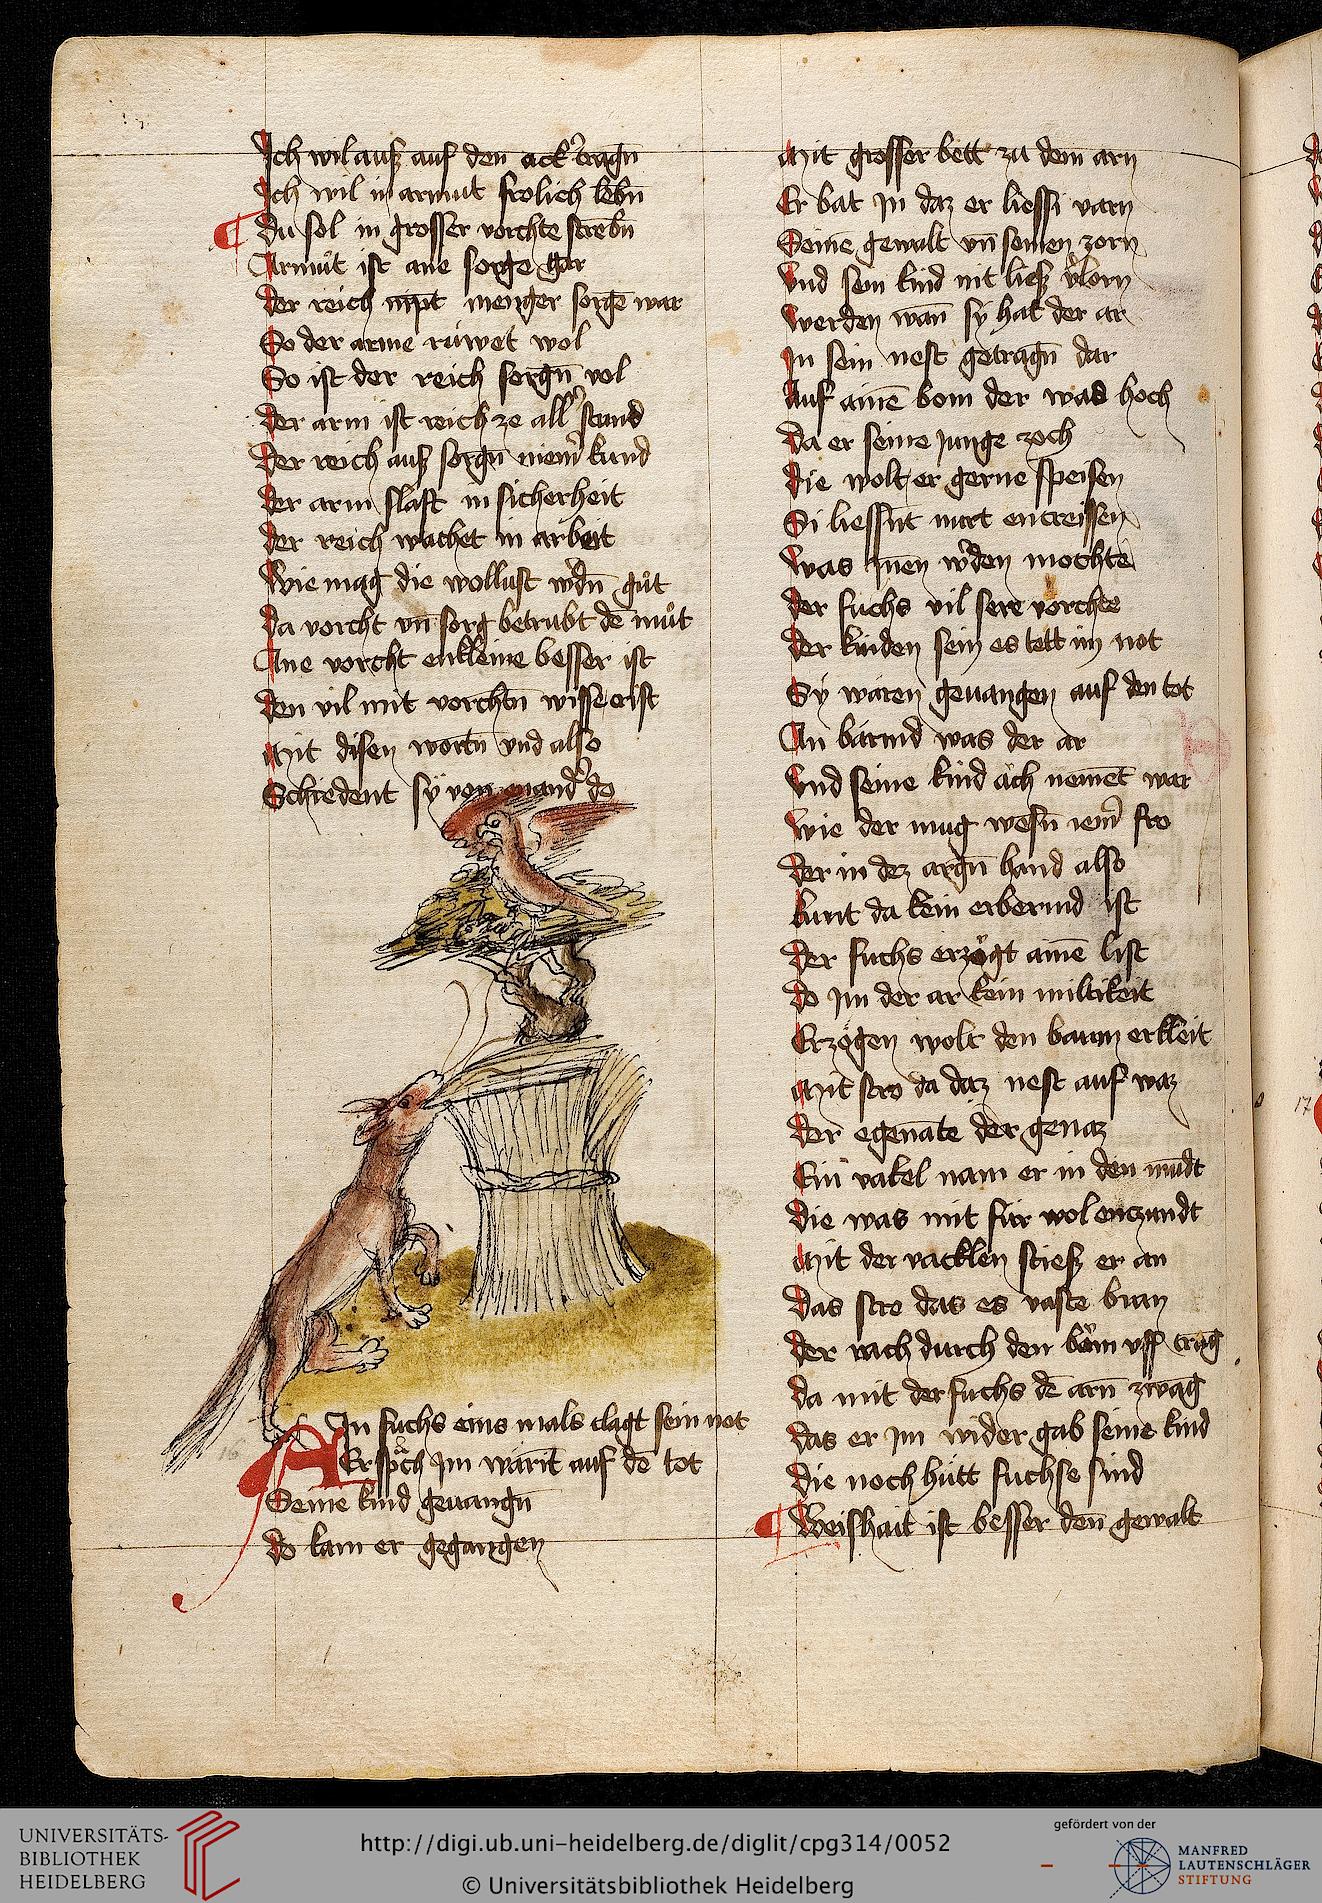 Ich wil auß auf den ack’ tragn̄
Ich wil in armut frolich lebn̄
Du sol in grosser vorchte strebn̄
Armůt ist ane sorge gar
der reich nīpt menger sorgē war
So der arme růwet wol
So ist der reich sorgn̄ vol
der arm ist reich ze all’ stund
Der reich auß sorgn̄ niem’ kund
der arm slaft in sicherheit
der reich wachet in arbeit
Wie mag die wollust w’dn̄ gůt
da vorcht vn̄ sorg betrubt dē můt
Ane vorcht enkleine besser ist
den vil mit vorchtn̄ wisse crist
Mit disen wortn̄ vnd also
Schiedent sÿ von enand’ do
Ain fuchs eins mals clagt sein not
Er spͦch Im wārīt auf dē tot
Seine kind geuangn̄
do kam er gegangen
Mit grosser bett zu dem arn
Er bat In daz er liessi varn
Seinē gewalt vn̄ seinen zorn
Vnd sein kind nit ließ v’lorn
werden wān sÿ hat der ar
In sein nest getragn̄ dar
Auf ainē bom der was hoch
Da er seine junge zoch
die wolt er gerne speisen
Si liessnt nirt entreissen
was Inen w’den mochte
der fuchs vil sere vorchte
der kinden sein es tett im not
Sÿ wāren geuangen auf den tot
An bārmd was der ar
Vnd seine kind ach nement war
wie der mug wesn̄ iem’ fro
der in dez argn̄ hand also
kunt da kein erbermd ist
der fuchs erzögt ainē list
do Im der ar kein miltikeit
Erzögen wolt den baum erkleit
Mit stro da daz nest auf waz
der egenāte der genaz
Ein vakel nam er in den mūdt
die was mit für wol enzundt
Mit der vacklen stieß er an
Das stro das es vaste bran
der rach durch den bom vff trug
da mit der fuchs dē arn̄ zwāg
das er Im wider gab seine kind
die noch hütt fuchse sind
Weishait ist besser den gewalt
17
16
UNIVERSITÄTS-
BIBLIOTHEK
HEIDELBERG
http://digi.ub.uni-heidelberg.de/diglit/cpg314/0052
© Universitätsbibliothek Heidelberg
gefördert von der
MANFRED
LAUTENSCHLÄGER
STIFTUNG